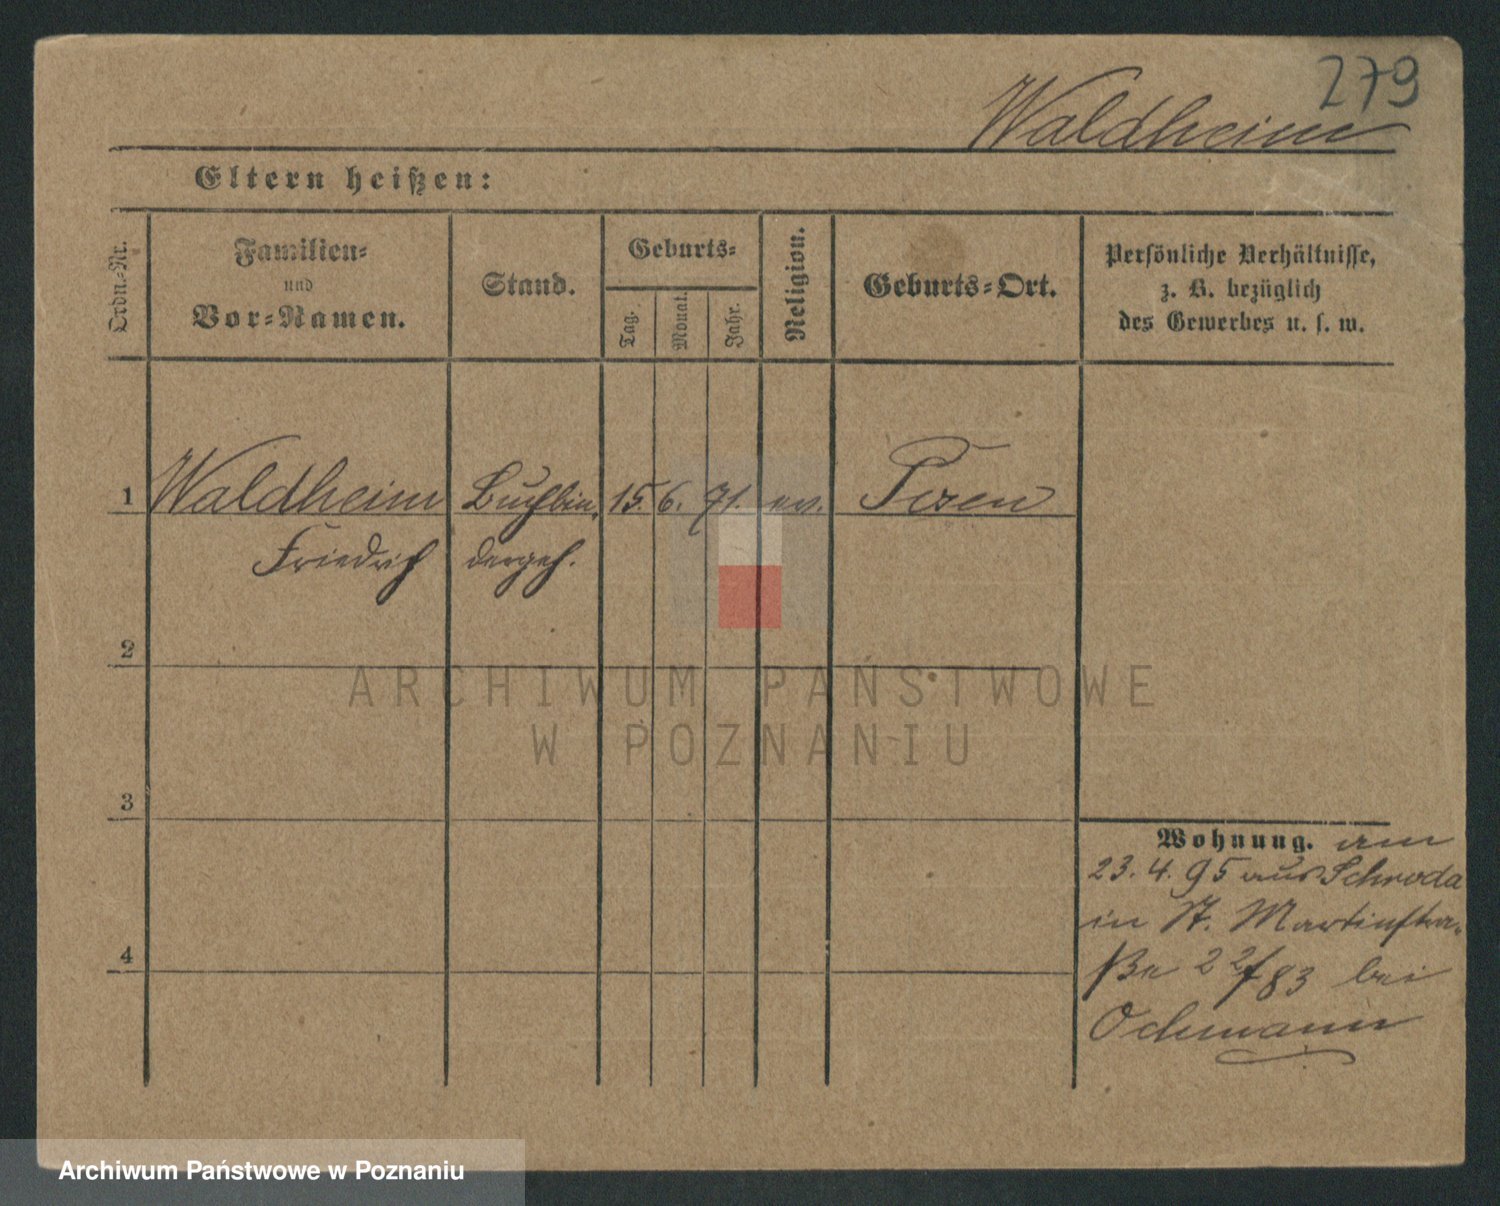 279
Waldheim
Eltern heißen:
Ordn.-Nr.
Familien-
und
Vor-Namen.
Stand.
Geburts-
Tag.
Monat.
Jahr.
Religion.
Geburts-Ort.
Persönliche Verhältnisse,
z. B. bezüglich
des Gewerbes u. s. w.
1 Waldheim Buchbin- 15. 6. 71. ev. Posen
Friedrich dergeh.
2
ARCHIWUM PAŃSTWOWE
W POZNANIU
3
Wohnung. am
23. 4. 95 aus Schroda
in St. Martinstra-
4
ße 22/83 bei
Ochmann
Archiwum Państwowe w Poznaniu